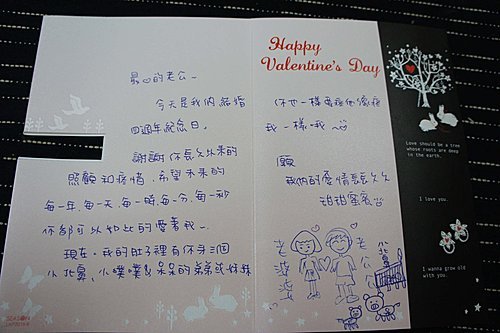 最♡的老公~
今天是我們結婚
四週年紀念日。
謝謝你長久以來的
照顧和疼惜,希望未來的
每一年、每一天、每一時、每一分、每一秒
你都可以如此的愛著我~
現在,我的肚子裡有你
小北鼻、小噗噗&呆呆的弟弟或妹妹
SEASON
Happy
Valentine's Day
你也一樣要疼他像疼
我一樣哦~
願
我們的愛情長長久久
甜甜蜜蜜
老婆
老公
小北鼻
Love should be a tree
whose roots are deep
in the earth.
I love you.
I wanna grow old
with you.